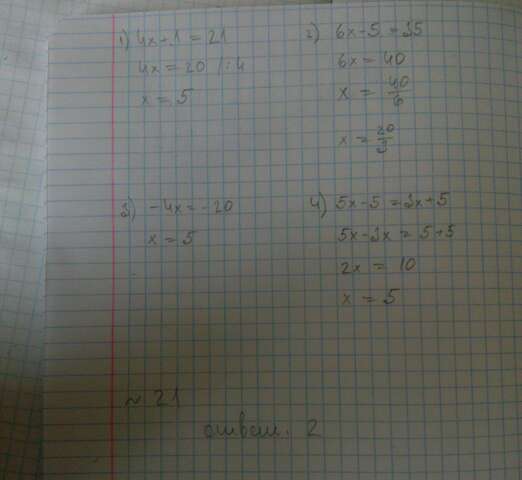 1) 4x+1 = 21
4x = 20 /:4
x = 5
2) 6x-5 = 35
6x = 40
x = 40/6
x = 20/3
3) -4x = -20
x = 5
4) 5x-5 = 3x+5
5x-3x = 5+5
2x = 10
x = 5
~ 21
ответ. 2